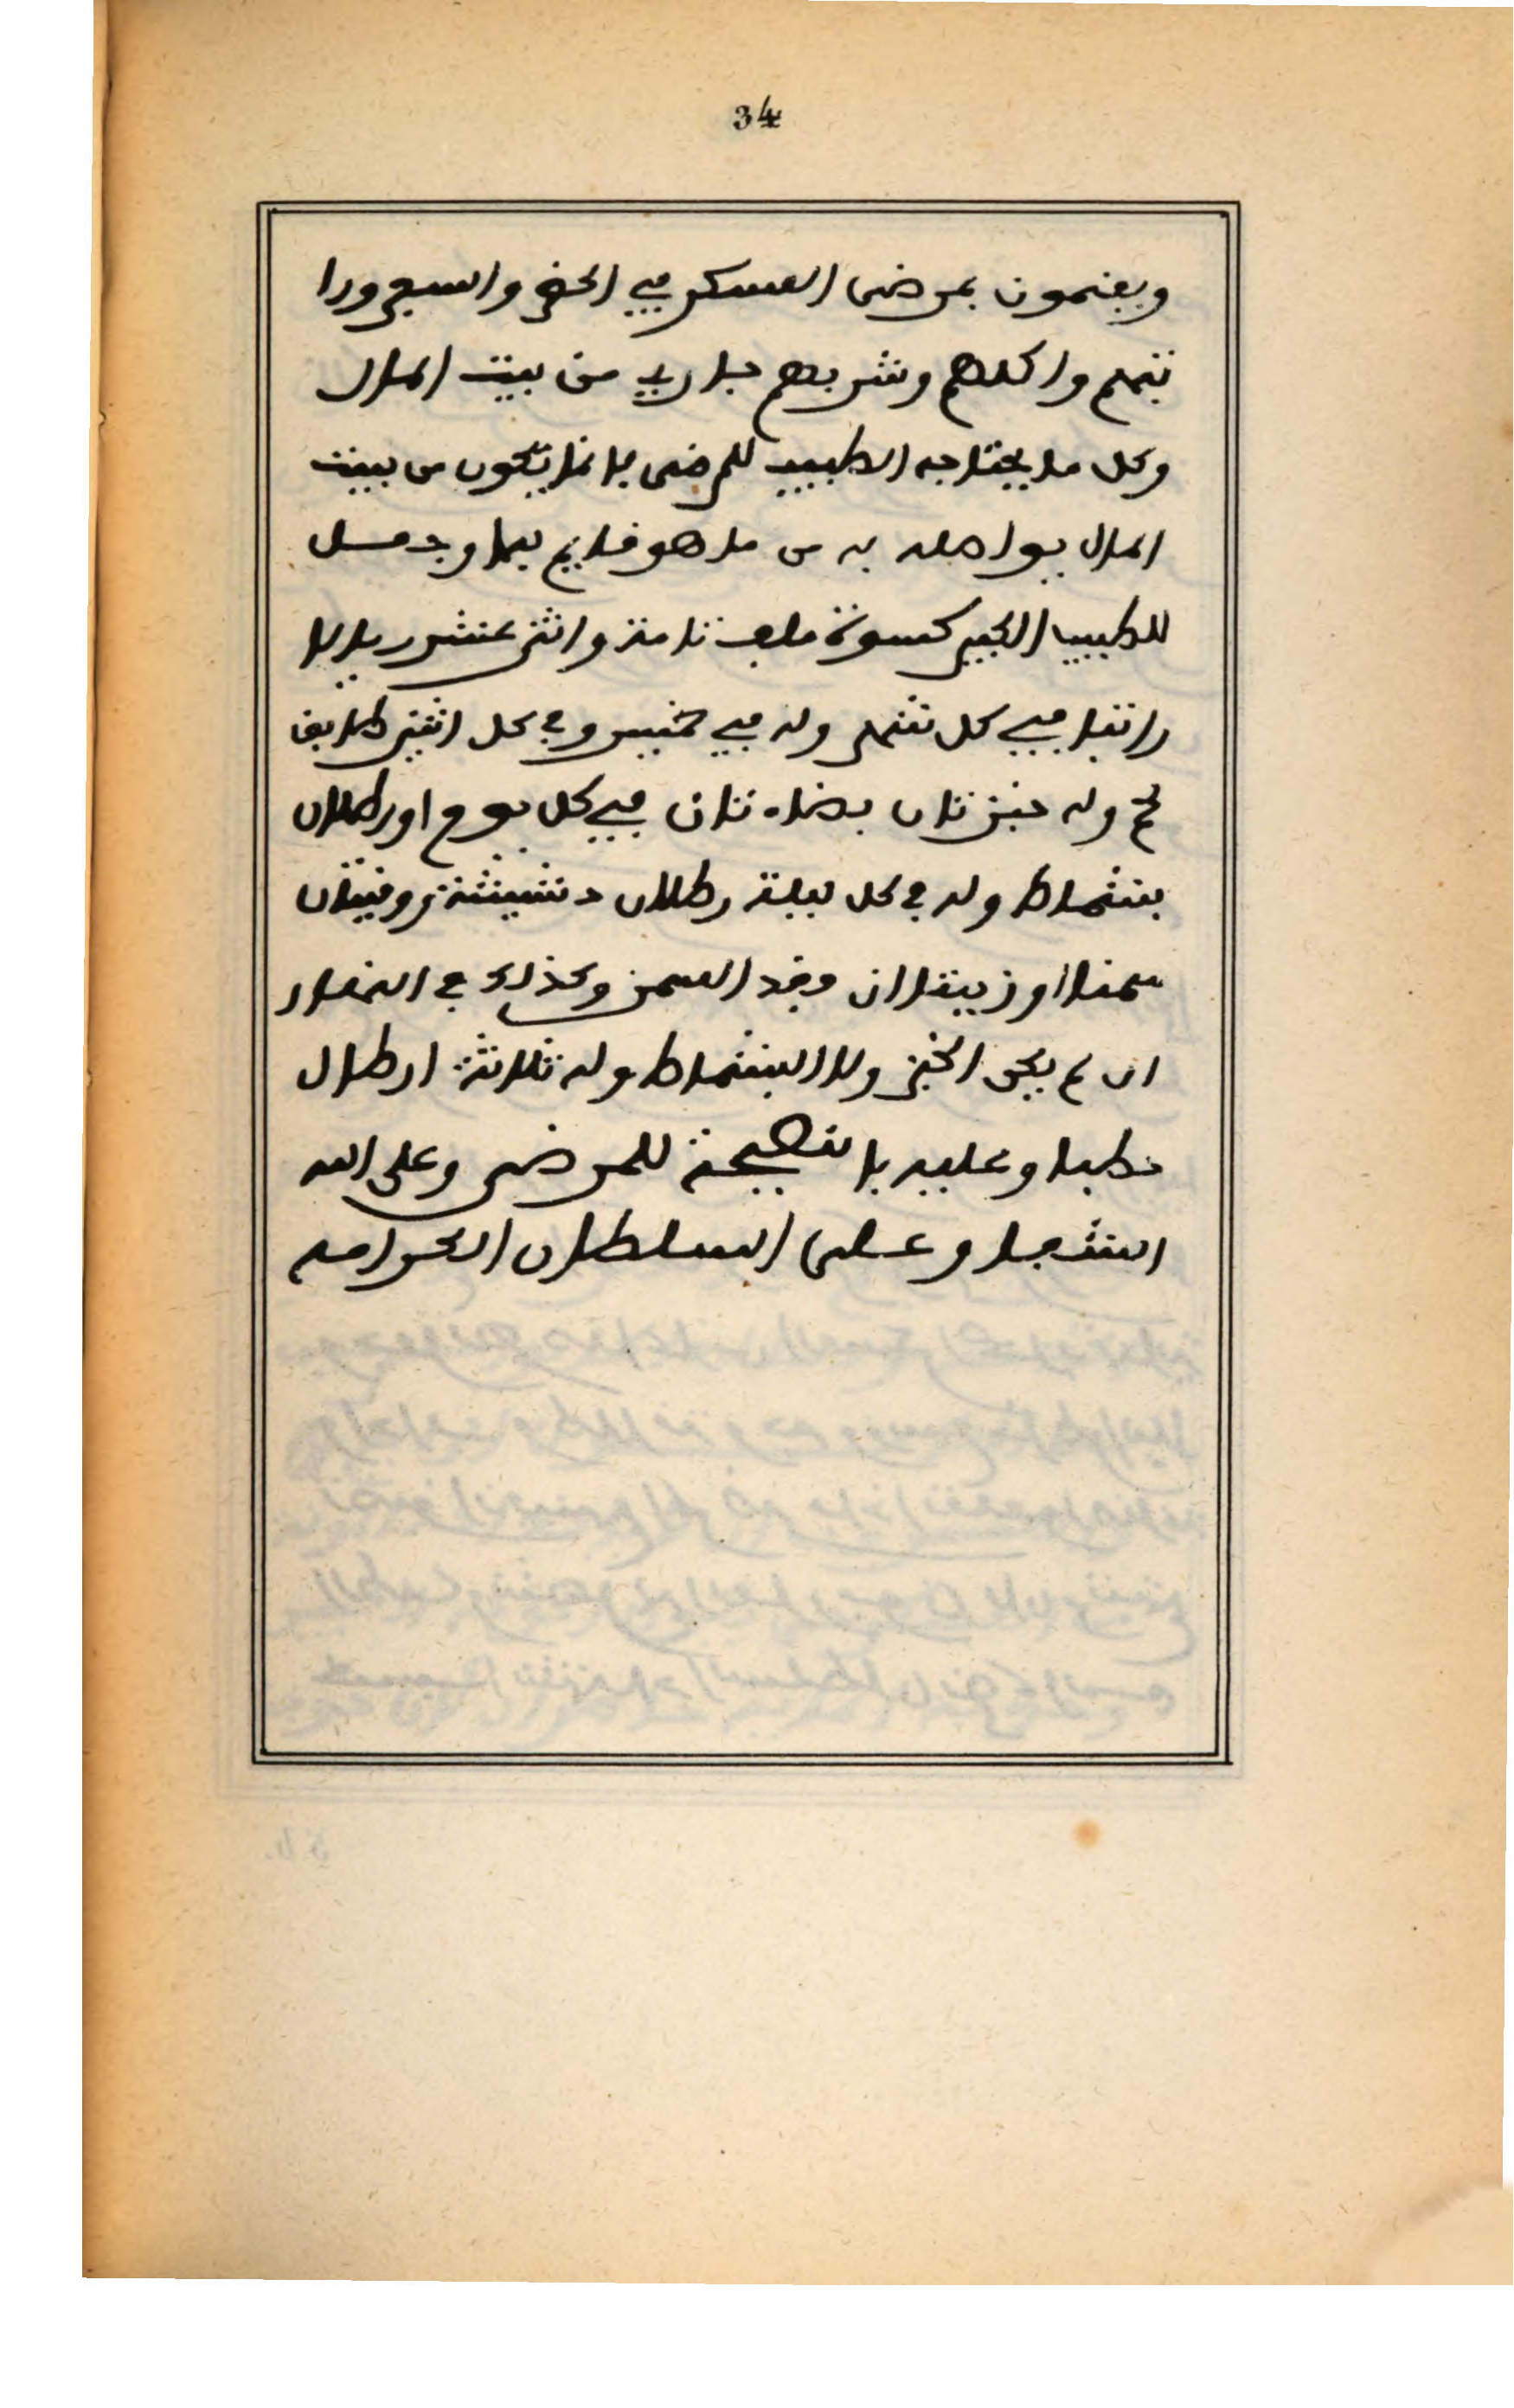 34
ويقيمون بمرضى العسكر في الحضر والسفر ورا
تبهم واكلهم وشربهم جاري من بيت المال
وكل ما يحتاجه الطبيب للمرضى فانما يكون من بيت
المال به من ما هو قايم
للطبيب الكبير كسوة ملف تامة واثني عشر ريالا
راتبا في كل شهر وله في خميس وفي كل اثنين طرايف
لحم وله خبزتان بيضاوتان في كل يوم او رطلان
بشماط وله في كل ليلة رطلان دشيشة ووقيتان
سمنا او زيتا ان فقد السمن وكذلك في النهار
ان لم يكن الخبز ولا البشماط وله ثلاثة ارطال
حطبا وعليه بالنصيحة للمرضى وعلى الله
الشفا وعلى السلطان الكرامه